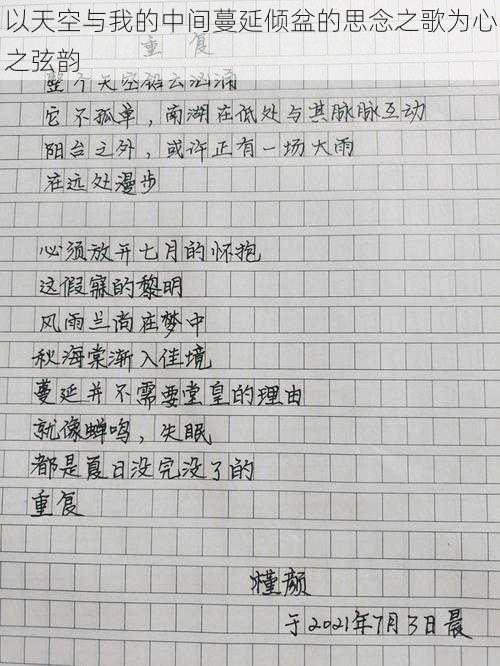 以天空与我的中间蔓延倾盆的思念之歌为心
之弦韵
重复
整个天空铅云汹涌
它不孤单，南湖在低处与其脉脉互动
阳台之外，或许正有一场大雨
在远处漫步
必须放开七月的怀抱
这假寐的黎明
风雨兰尚在梦中
秋海棠渐入佳境
蔓延并不需要堂皇的理由
就像蝉鸣，失眠
都是夏日没完没了的
重复
槿颜
于2021年7月3日晨